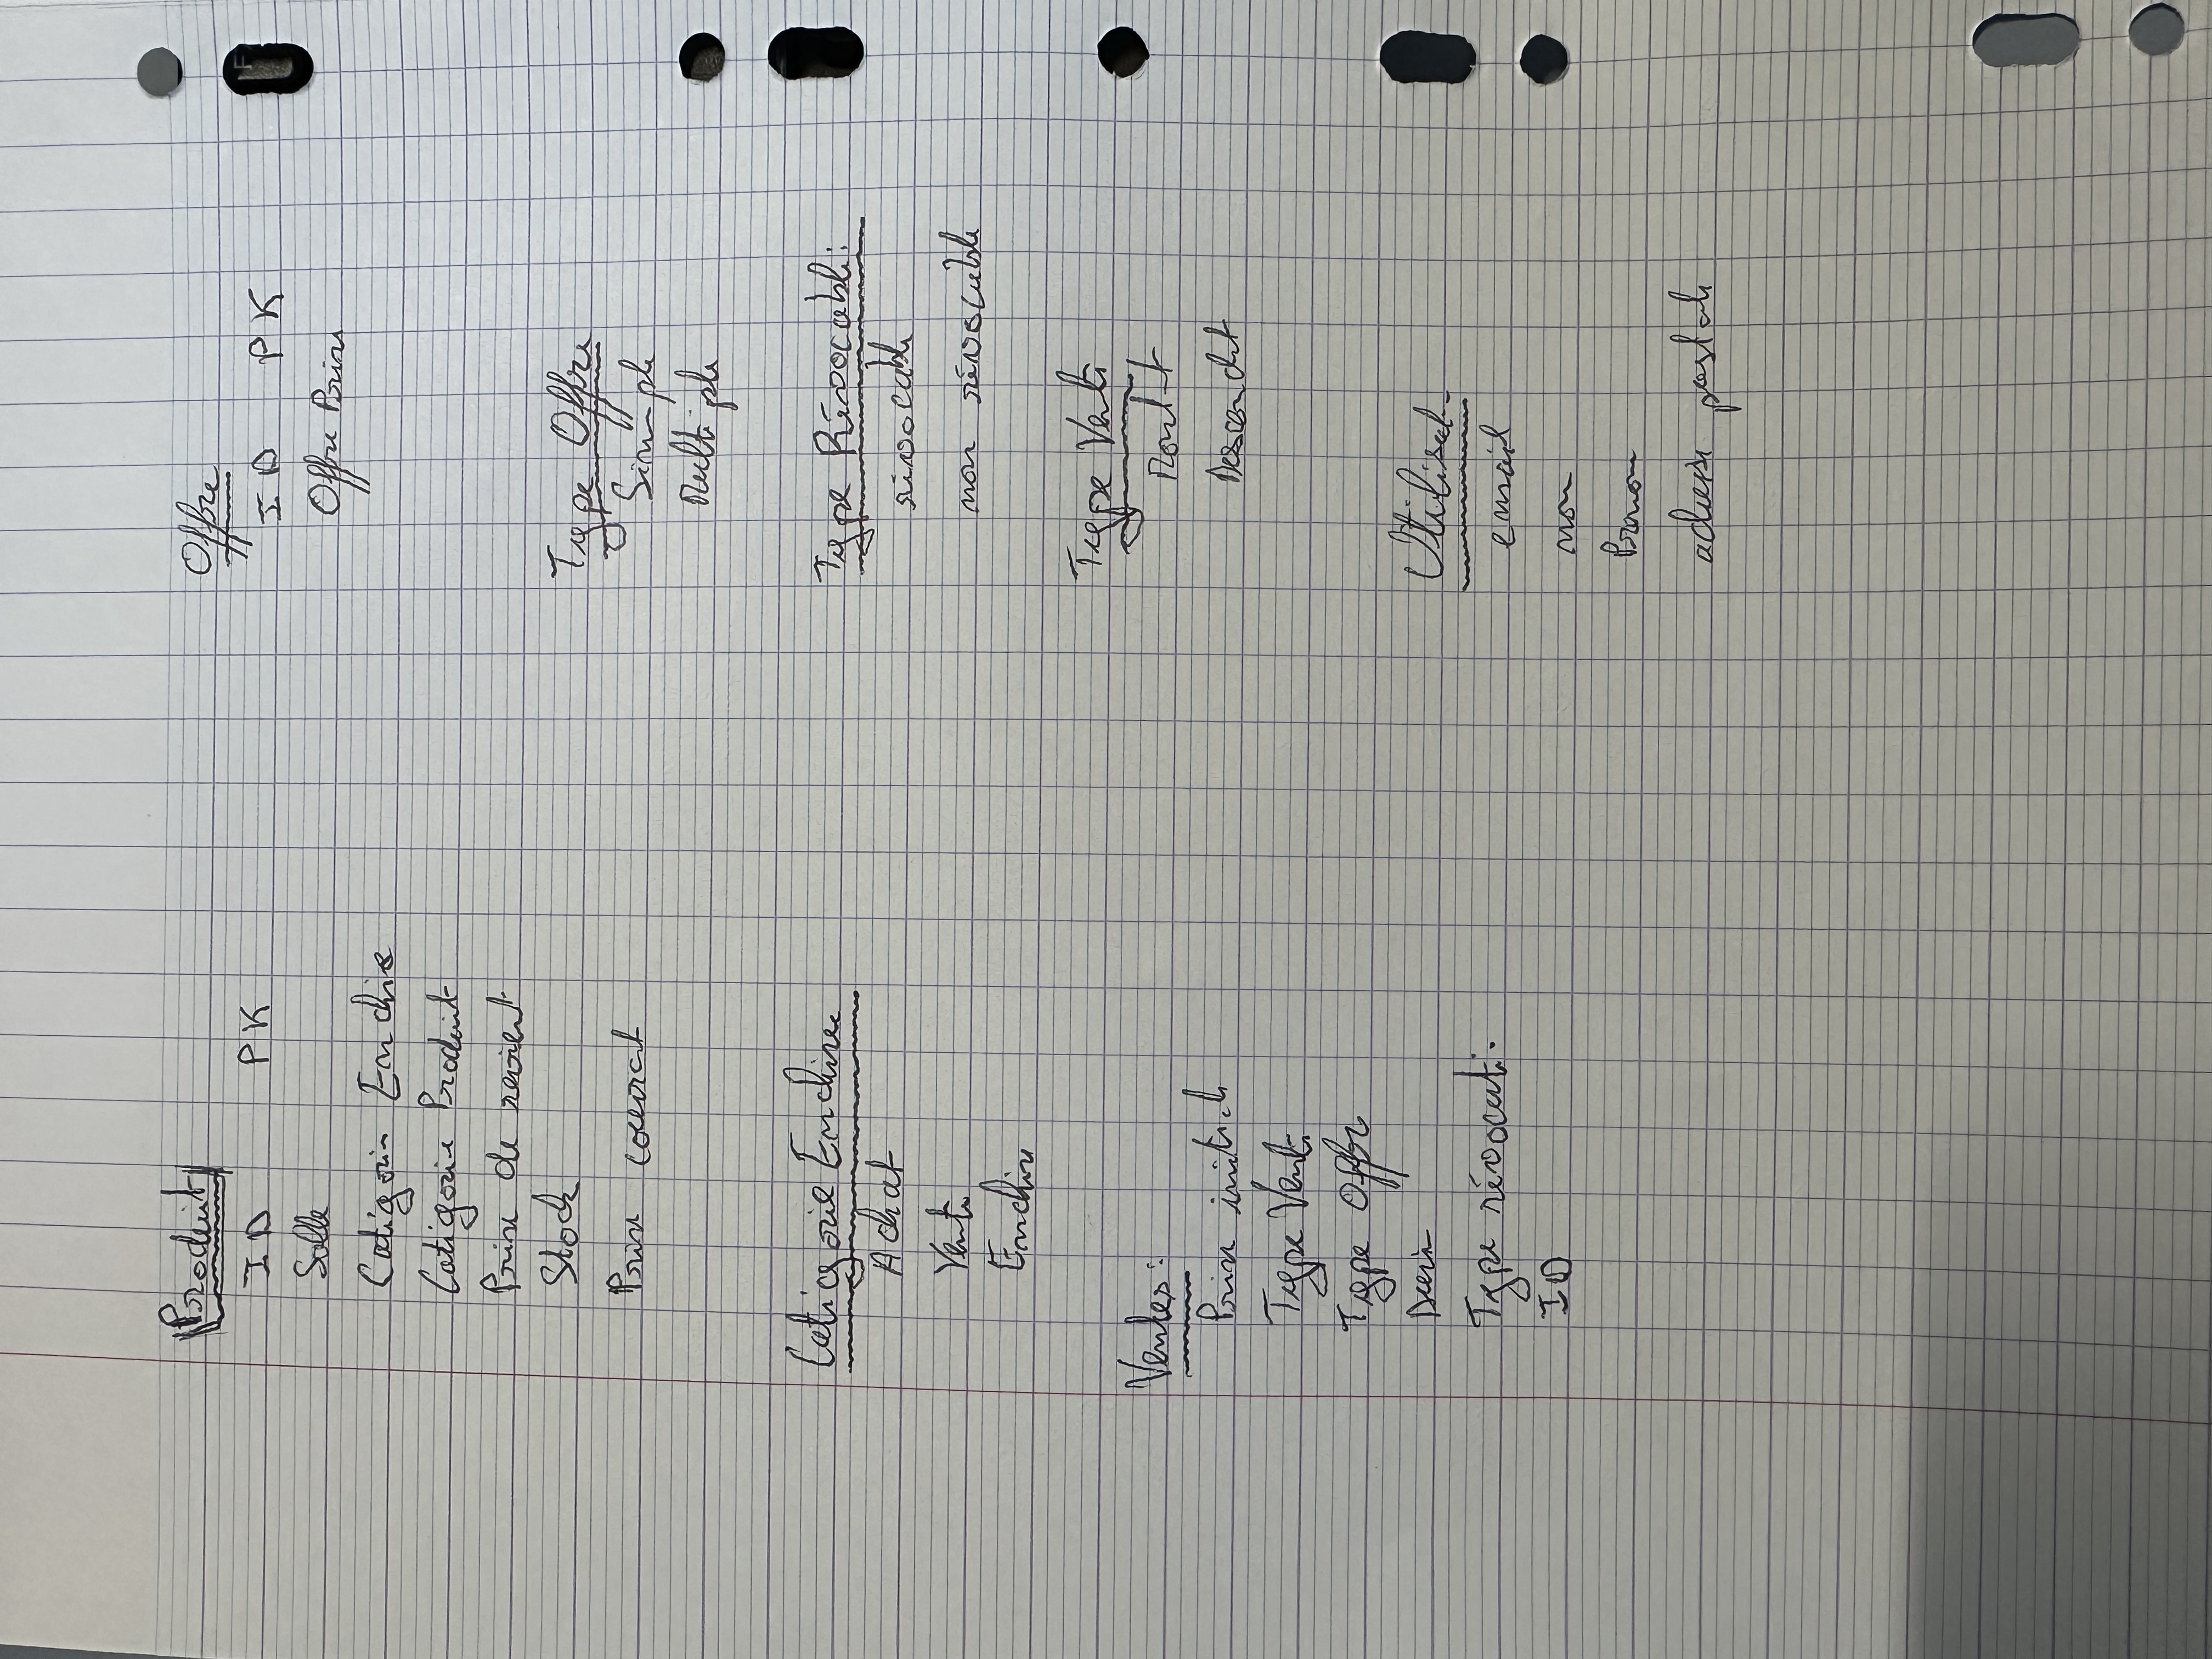 Produit
ID PK
Salle
Catégorie Enchère
Catégorie Produit
Prix de revient
Stock
Prix courant
Catégorie Enchère
Achat
Vente
Enchère
Ventes :
Prix initiale
Type Vente
Type Offre
Durée
Type révocati.
ID
Offre
ID PK
Offre Prix
Type Offre
Simple
Multiple
Type Révocable :
révocable
non révocable
Type Vente
Montant
Descendant
Utilisat.
email
nom
Prenom
adresse postale